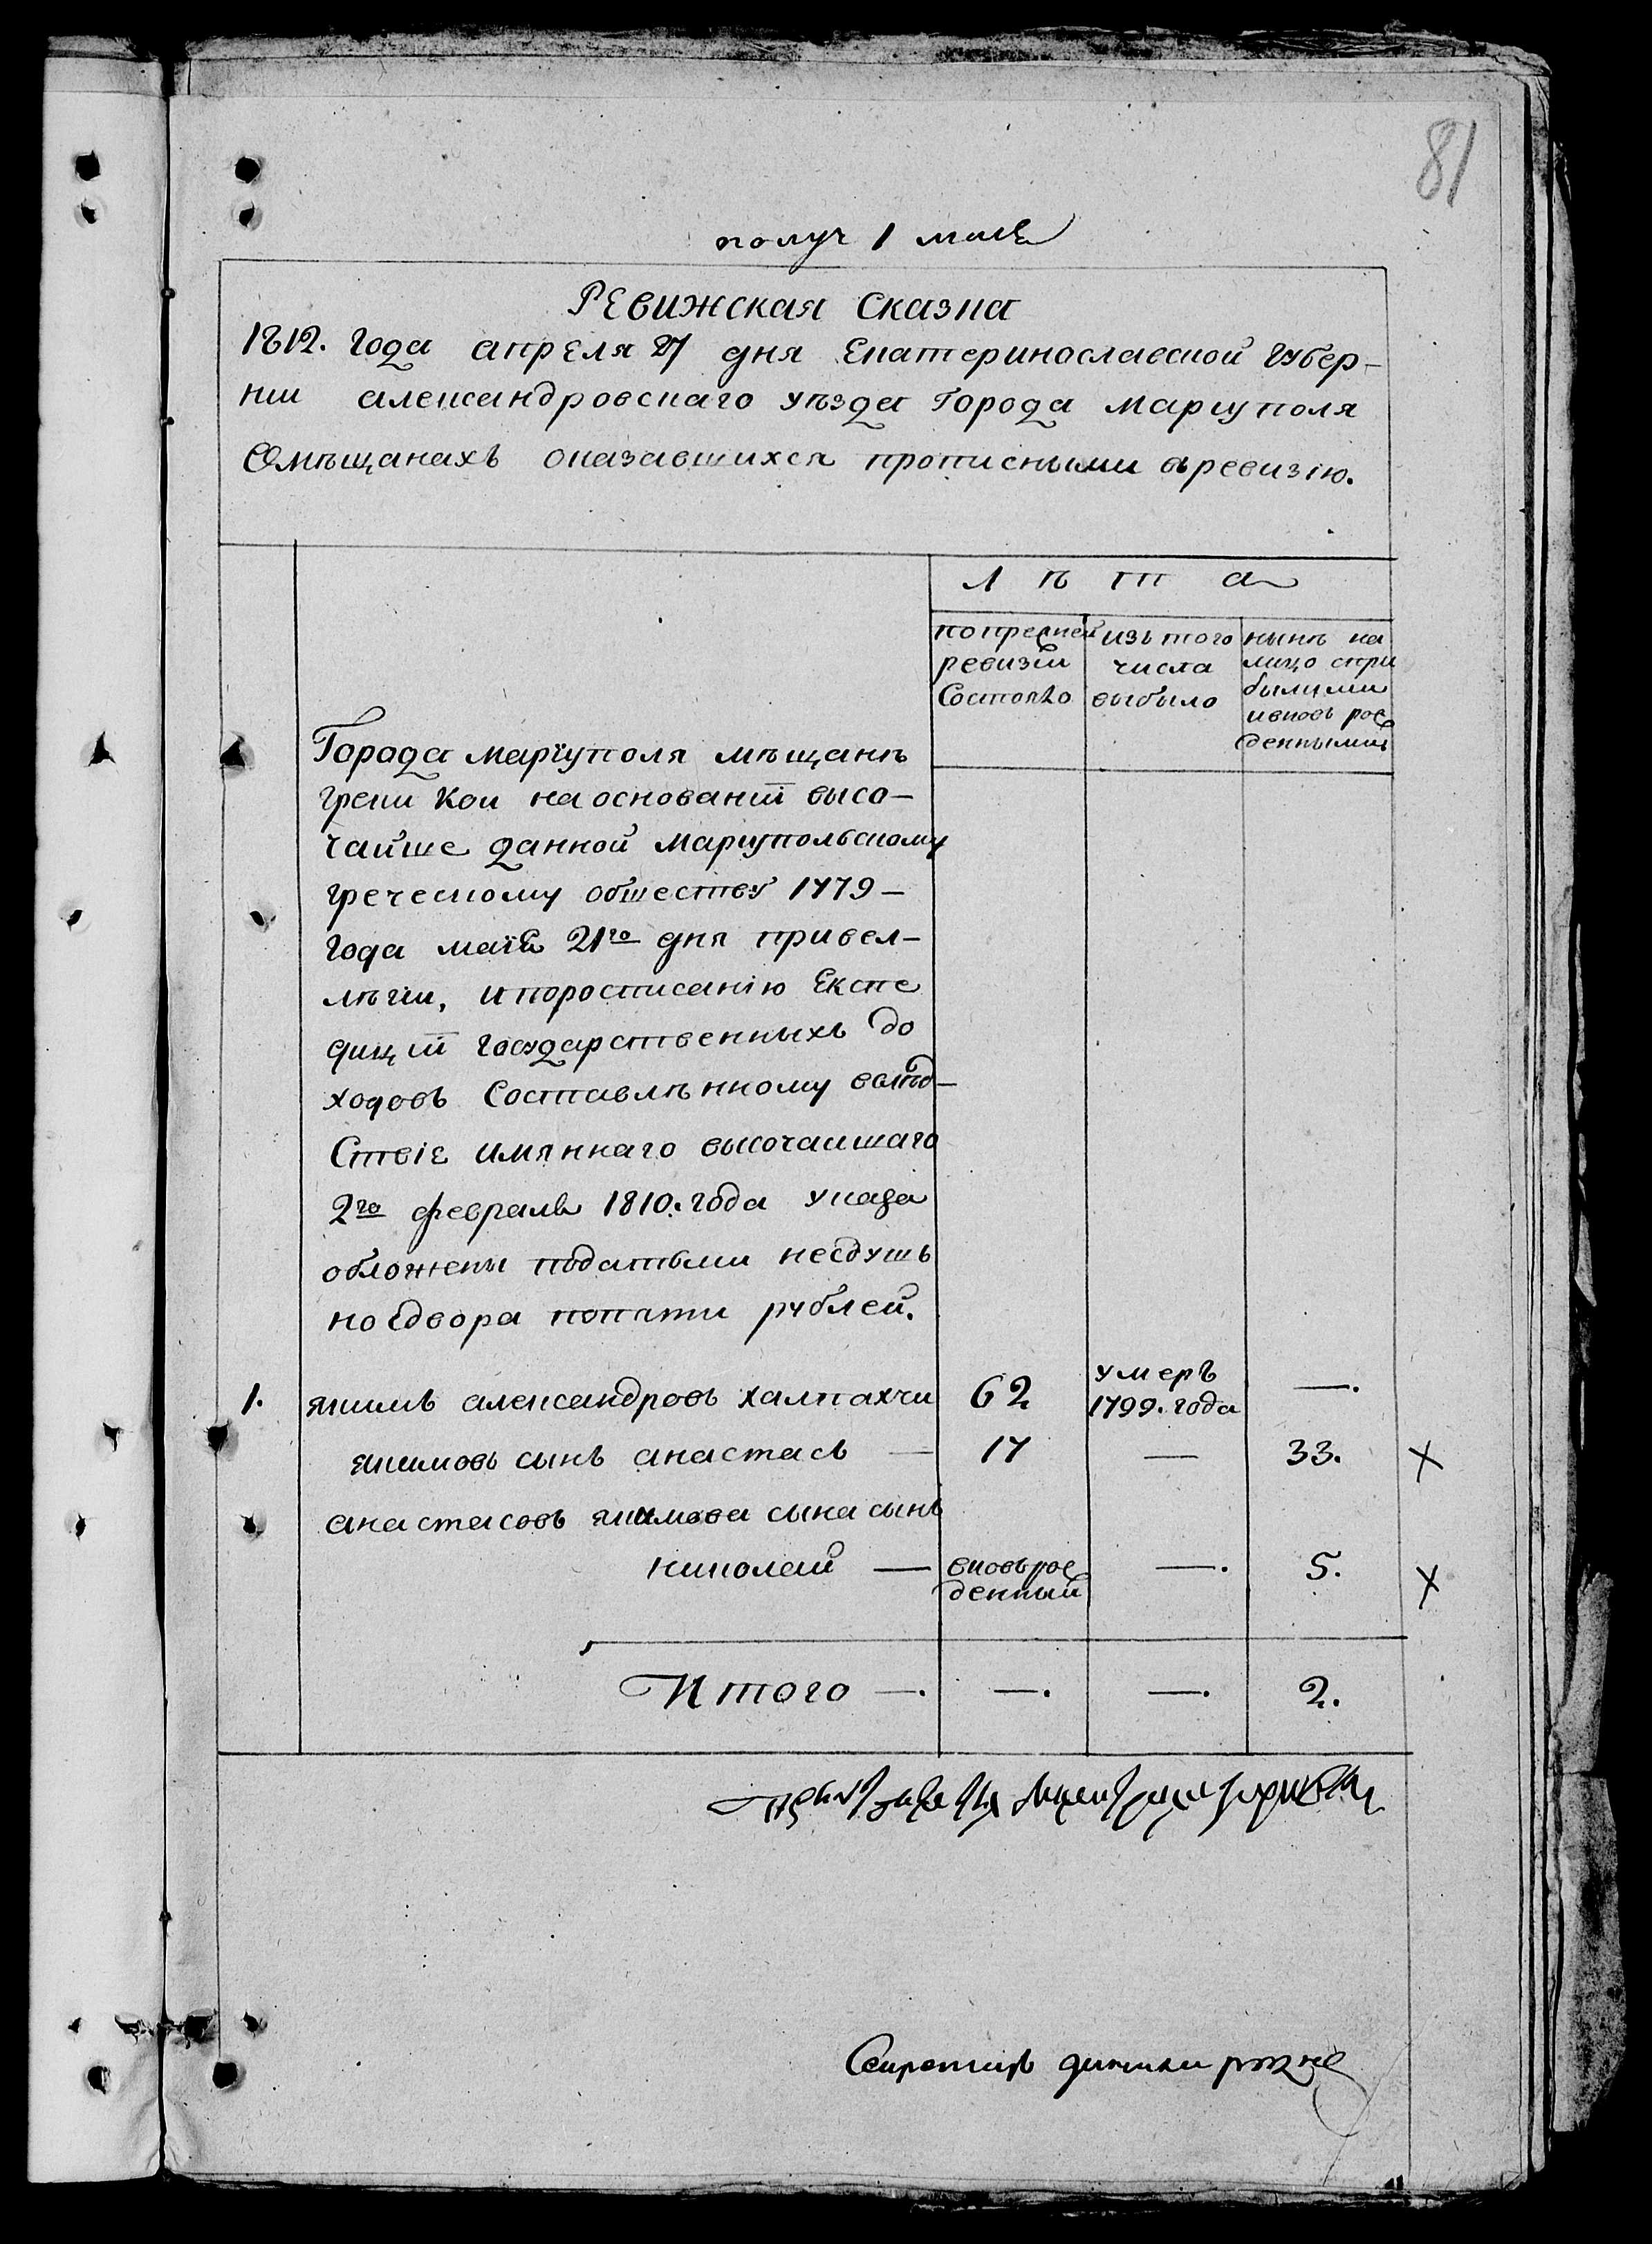 81
получ 1 маiя
Ревижская Сказка
1812. Года апреля 27 дня Екатеринославской губер-
нии александровскаго уѣзда Города Мариуполя
Омѣщанахъ оказавшихся прописными вревизiю.
Лѣта
попрежней
ревизiи
Состояло
изъ того
числа
выбыло
нынѣ на
лицо спри
былыми
ивновь рож
денными
Города марiуполя мѣщанѣ
греки Кои наоснованiи высо-
чаише данной марiупольскому
греческому обшеству 1779-
года маiя 21го дня привел-
лѣгiи, ипоросписанiю Експе
дицiи государственныхъ до
ходовъ Составлѣнному волѣд-
Ствiе имяннаго высочаишаго
2го февраля 1810. года указа
обложены податьми несдушъ
но сдвора попяти рублей.
1. якимъ александровъ халпахчи 62 умеръ 1799. года —.
якимовъ сынъ анастасъ — 17 — 33. х
анастасовъ якимова сына сынъ
николай — вновьрож денный —. 5. х
Итого —. —. —. 2.
Секретарь